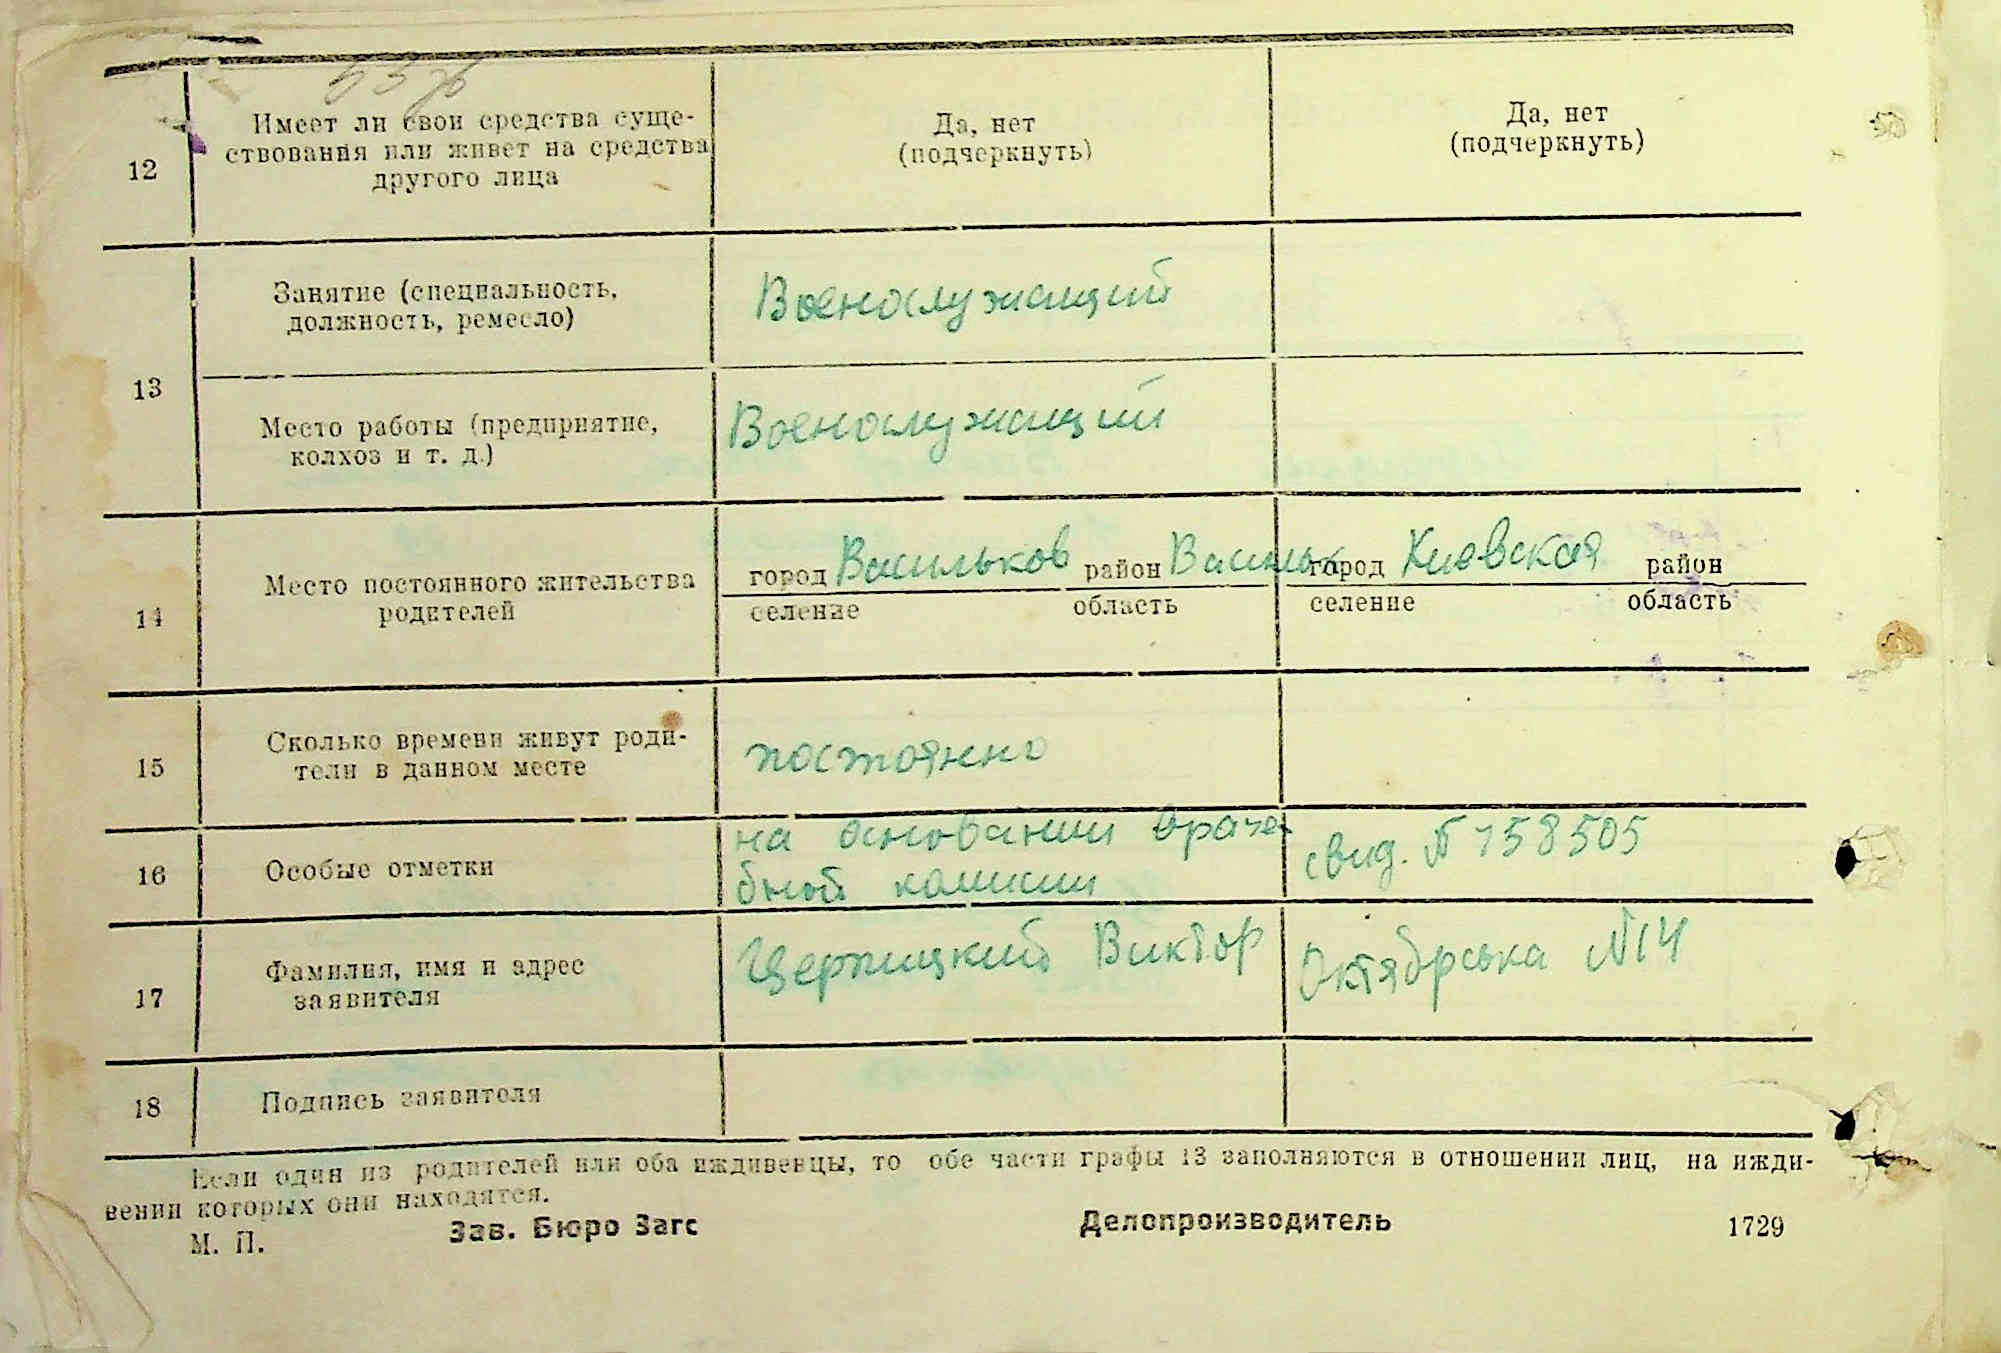 12
Имеет ли свои средства суще-
ствования или живет на средства
другого лица
Да, нет
(подчеркнуть)
Да, нет
(подчеркнуть)
13
Занятие (специальность,
должность, ремесло)
Военослужащий
Место работы (предприятие,
колхоз и т. д.)
Военослужащий
14
Место постоянного жительства
родителей
город Васильков район Васильк
селение область
город Киевская район
селение область
15
Сколько времени живут роди-
тели в данном месте
постоянно
16
Особые отметки
на основании враче-
бной комисии
свид. № 158505
17
Фамилия, имя и адрес
заявителя
Церпицкий Виктор
Октябрська №14
18
Подпись заявителя
Если один из родителей или оба иждивенцы, то обе части графы 13 заполняются в отношении лиц, на ижди-
вении которых они находятся.
М. П.
Зав. Бюро Загс
Делопроизводитель
1729